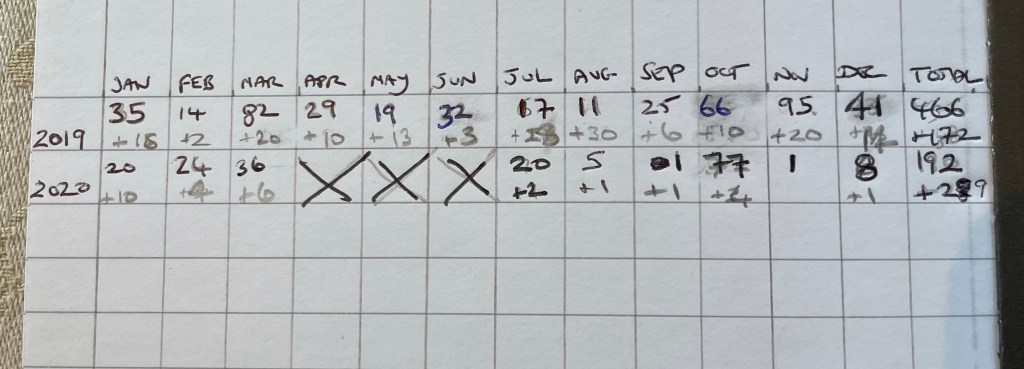 JAN FEB MAR APR MAY JUN JUL AUG SEP OCT NOV DEC TOTAL
35 14 82 29 19 32 17 11 25 66 95 41 466
2019 +18 +2 +20 +10 +13 +3 +30 +6 +10 +20 +172
20 24 36 20 5 1 77 1 8 192
2020 +10 +4 +6 +2 +1 +1 +1